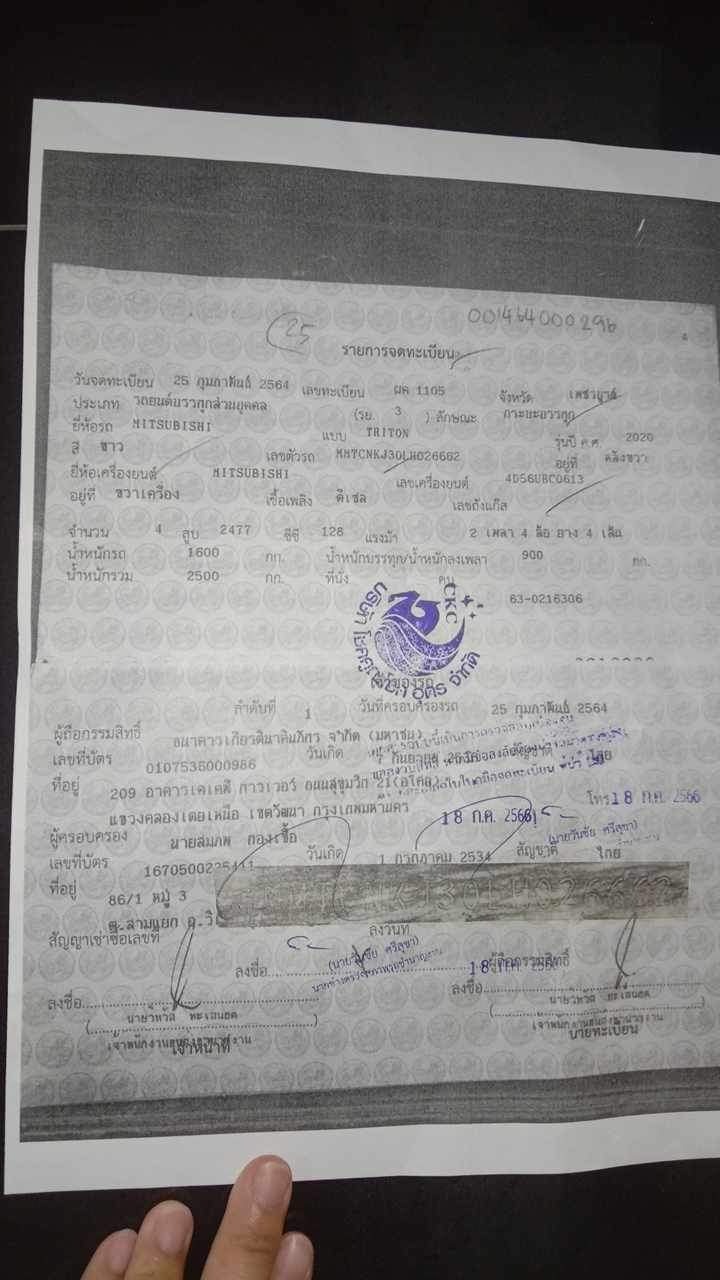 25
001464000296
รายการจดทะเบียน
วันจดทะเบียน 25 กุมภาพันธ์ 2564 เลขทะเบียน ผค 1105 จังหวัด เพชรบูรณ์
ประเภท รถยนต์บรรทุกส่วนบุคคล (รย. 3 ) ลักษณะ กระบะบรรทุก
ยี่ห้อรถ MITSUBISHI แบบ TRITON รุ่นปี ค.ศ. 2020
สี ขาว เลขตัวรถ MMTCNKJ30LH026662 อยู่ที่ คลังขวา
ยี่ห้อเครื่องยนต์ MITSUBISHI เลขเครื่องยนต์ 4D56UBC0613
อยู่ที่ ขวาเครื่อง เชื้อเพลิง ดีเซล เลขถังแก๊ส
จำนวน 4 สูบ 2477 ซีซี 128 แรงม้า 2 เพลา 4 ล้อ ยาง 4 เส้น
น้ำหนักรถ 1600 กก. น้ำหนักบรรทุก/น้ำหนักลงเพลา 900 กก.
น้ำหนักรวม 2500 กก. ที่นั่ง คน
CKC
63-0216306
เจ้าของรถ
ลำดับที่ 1 วันที่ครอบครองรถ 25 กุมภาพันธ์ 2564
ผู้ถือกรรมสิทธิ์ ธนาคารเกียรตินาคินภัทร จำกัด (มหาชน)
เลขที่บัตร 0107536000986 วันเกิด ไทย
ที่อยู่ 209 อาคารเคเคพี ทาวเวอร์ ถนนสุขุมวิท 21(อโศก)
แขวงคลองเตยเหนือ เขตวัฒนา กรุงเทพมหานคร โทร 18 ก.ค. 2566
18 ก.ค. 2566
(นายวันชัย ศรีสุขา)
ผู้ครอบครอง นายสมภพ ทองเชื้อ
เลขที่บัตร วันเกิด 1 กรกฎาคม 2534 สัญชาติ ไทย
ที่อยู่ 86/1 หมู่ 3
ต.สามแยก
สัญญาเช่าซื้อเลขที่ ลงวันที่ ผู้ถือกรรมสิทธิ์
ลงชื่อ (นายวันชัย ศรีสุขา) 18 ก.ค.
ลงชื่อ ลงชื่อ
เจ้าหน้าที่ นายทะเบียน